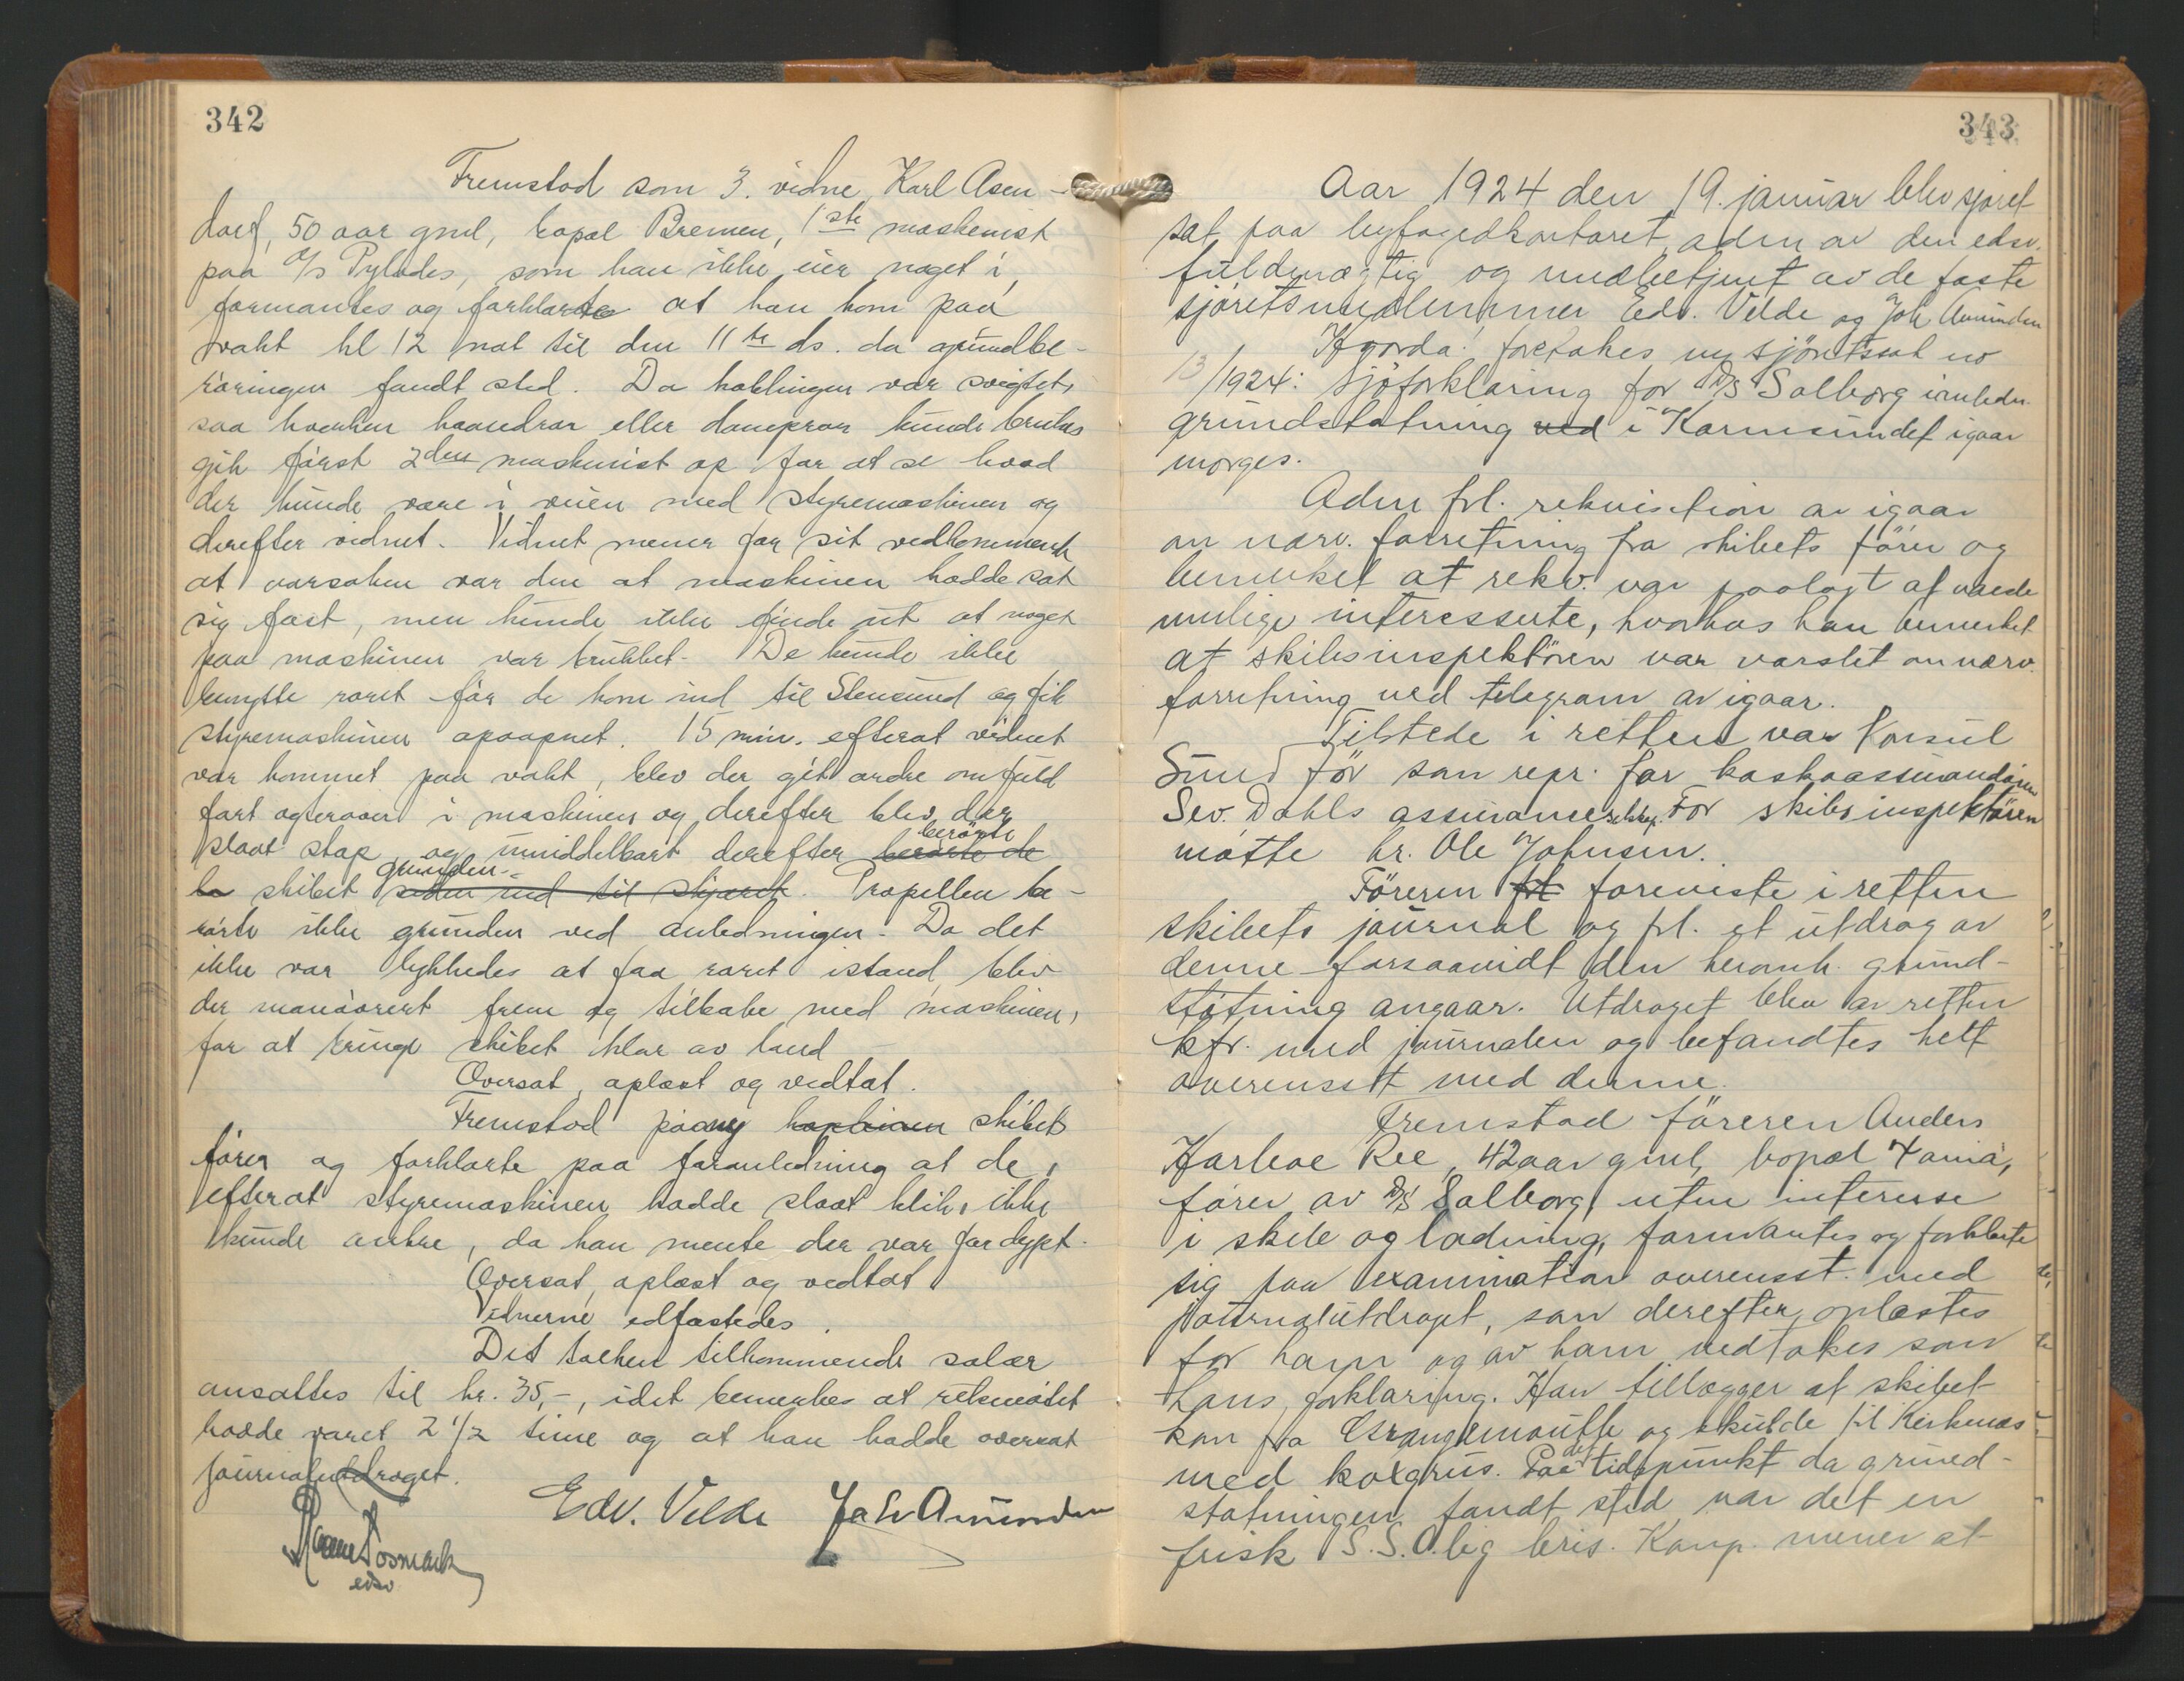 342
Fremstod som 3. vidne Karl Asen-
dorf, 50 aar gml, bopæl Bremen, 1ste maskinist
paa D/S Pylades, som han ikke eier noget i,
formantes og forklarte at han kom paa
vakt kl 12 nat til den 11te ds. da grundbe-
röringen fandt sted. Da koblingen var svigtet,
saa hverken haandror eller dampror kunde brukes
gik först 2den maskinist op for at se hvad
der kunde være i veien med styremaskinen og
derefter vidnet. Vidnet mener for sit vedkommende
at aarsaken var den at maskinen hadde sat
sig fast, men kunde ikke finde ut at noget
paa maskinen var brukket. De kunde ikke
benytte roret för de kom ind til Stensund og fik
styremaskinen opaapnet. 15 min. efterat vidnet
var kommet paa vakt, blev der git ordre om fuld
fart agterover i maskinen og derefter blev der
slaat stop og umiddelbart derefter berörte de berörte
skibet siden ind til skjæret grunden. Propellen be-
rörte ikke grunden ved anledningen. Da det
ikke var lykkedes at faa roret istand, blev
der manövrert frem og tilbake med maskinen,
for at bringe skibet klar av land
Oversat, oplæst og vedtat.
Fremstod paany kapteinen skibets
förer og forklarte paa foranledning at de,
efterat styremaskinen hadde slaat klik, ikke
kunde ankre, da han mente der var for dypt.
Oversat, oplæst og vedtat
Vidnerne edfæstedes.
Det tolken tilkommende salær
ansattes til kr. 35,-, idet bemerkes at retsmötet
hadde varet 2 1/2 time og at han hadde oversat
journalutdraget.
Edv. Velde Joh Amundsen
edsv
343
Aar 1924 den 19. januar blev sjöret
sat paa byfogedkontoret, adm av den edsv.
fuldmægtig og medbetjent av de faste
sjöretsmedlemmer Edv. Velde og Joh Amundsen
Hvorda: foretokes ny sjöretssak no
13/1924: Sjöforklaring for D/S Salborg i anledn.
grundstötning ved i Karmsundet igaar
morges.
Adm frl. rekvisition av igaar
om nærv. forretning fra skibets förer og
bemerket at rekv. var paalagt at varsle
mulige interesserte, hvorhos han bemerket
at skibsinspektören var varslet om nærv.
forretning ved telegram av igaar.
Tilstede i retten var Konsul
Sund för som repr. for kaskoassurandören
Sev. Dahls assuranceselsk. For skibsinspektören
mötte hr. Ole Johnsen.
Föreren frl foreviste i retten
skibets journal og frl. et utdrag av
denne forsaavidt den heromh. grund-
stötning angaar. Utdraget blev av retten
kfr. med journalen og befandtes helt
overensst med denne.
Fremstod föreren Anders
Harboe Ree, 42 aar gml, bopæl Fana,
förer av D/S Salborg uten interesse
i skib og ladning, formantes og forklarte
sig paa examination overensst. med
journalutdraget, som derefter oplæstes
for ham og av ham vedtokes som
hans forklaring. Han tillægger at skibet
kom fra Grangemouth og skulde til Kirkenes
med koxgrus. Paa det tidspunkt da grund-
stötningen fandt sted var det en
frisk S.S.O.lig bris. Komp. mener at